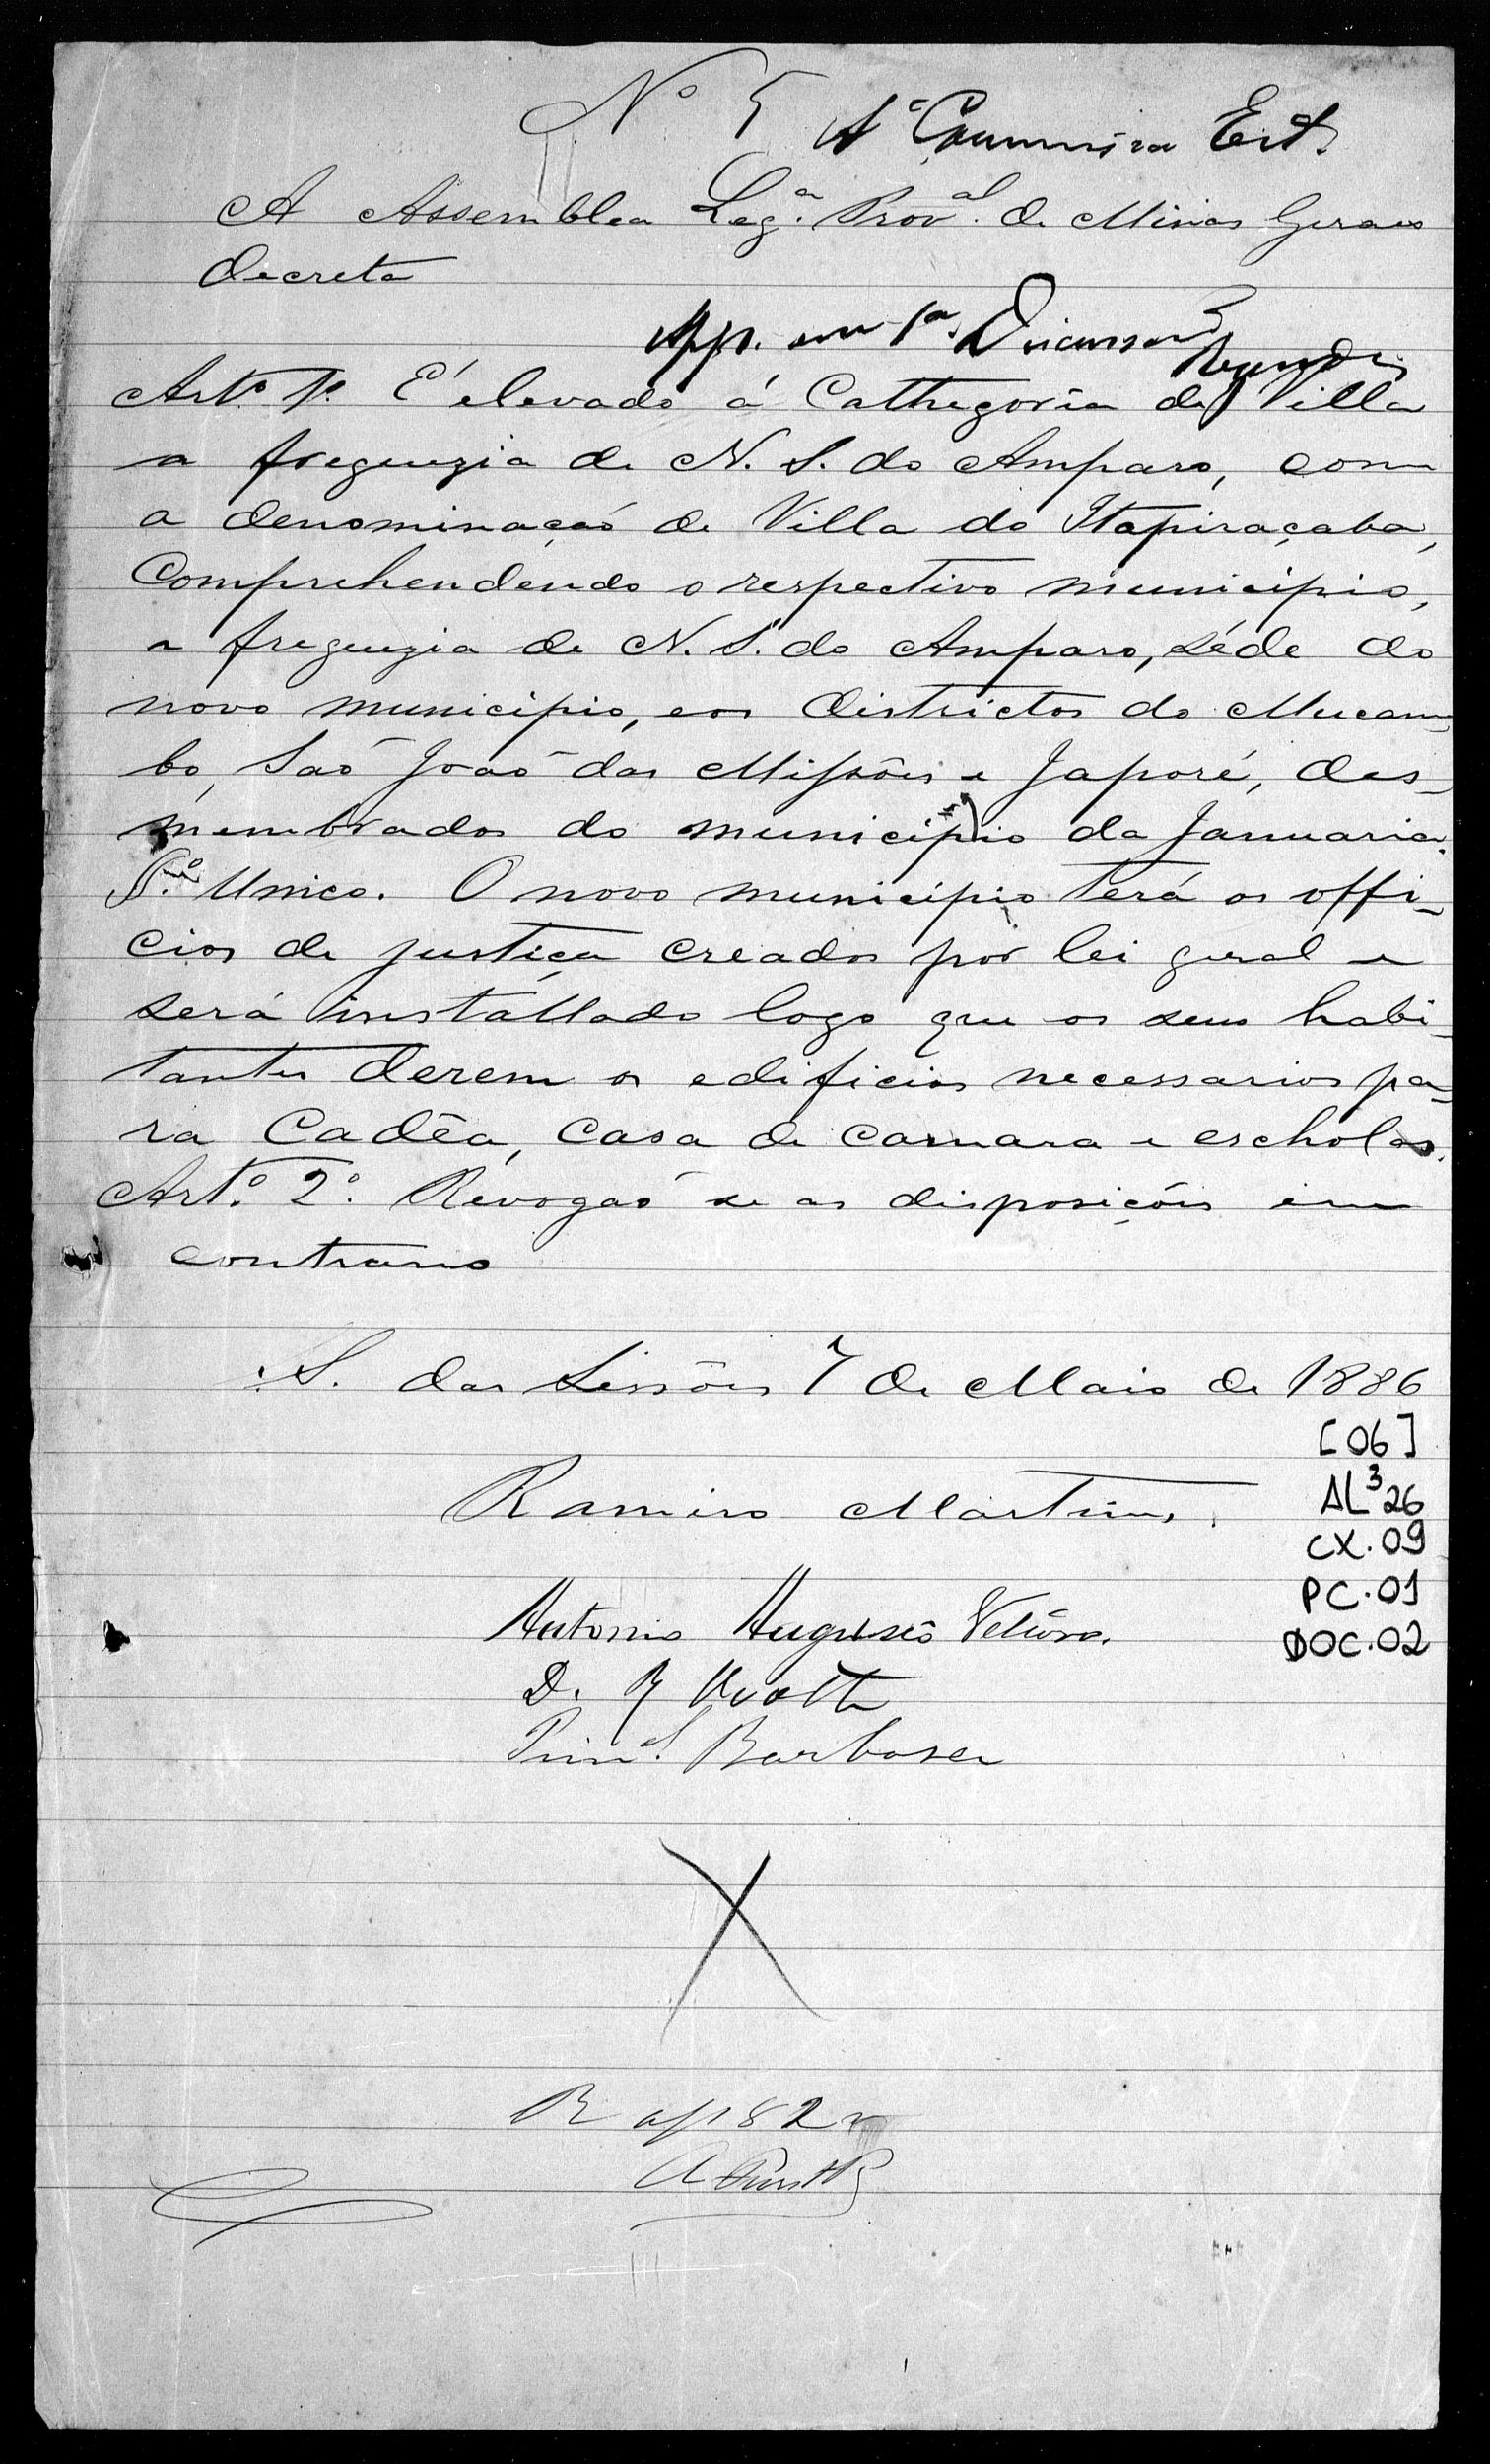 Nº 5 A Commissão Est.
A Assemblea Leg.ª Prov.al de Minas Geraes
decreta
App. em 1ª Discussão
Art.º 1º. É elevado á Cathegoria de Villa
a freguezia de N. S. do Amparo, com
a denominação de Villa do Itapiraçaba,
Comprehendendo o respectivo municipio,
a freguezia de N. S. do Amparo, séde do
novo municipio, e os districtos do Mucam-
bo, São João das Missões e Japoré, des-
membrados do municipio da Januaria.
§.º Unico. O novo municipio terá os offi-
cios de justiça creados por lei geral e
será installado logo que os seus habi-
tantes derem os edificios necessarios pa-
ra Cadêa, Casa de Camara e escholas.
Art.º 2º. Revogão se as disposições em
contrario
S. das Sessões 7 de Maio de 1886
[06]
Ramiro Martins.
AL³26
CX.09
PC.01
Antonio Augusto Velloso.
DOC.02
D. R
Pim.el Barbosa
R a f 82 v